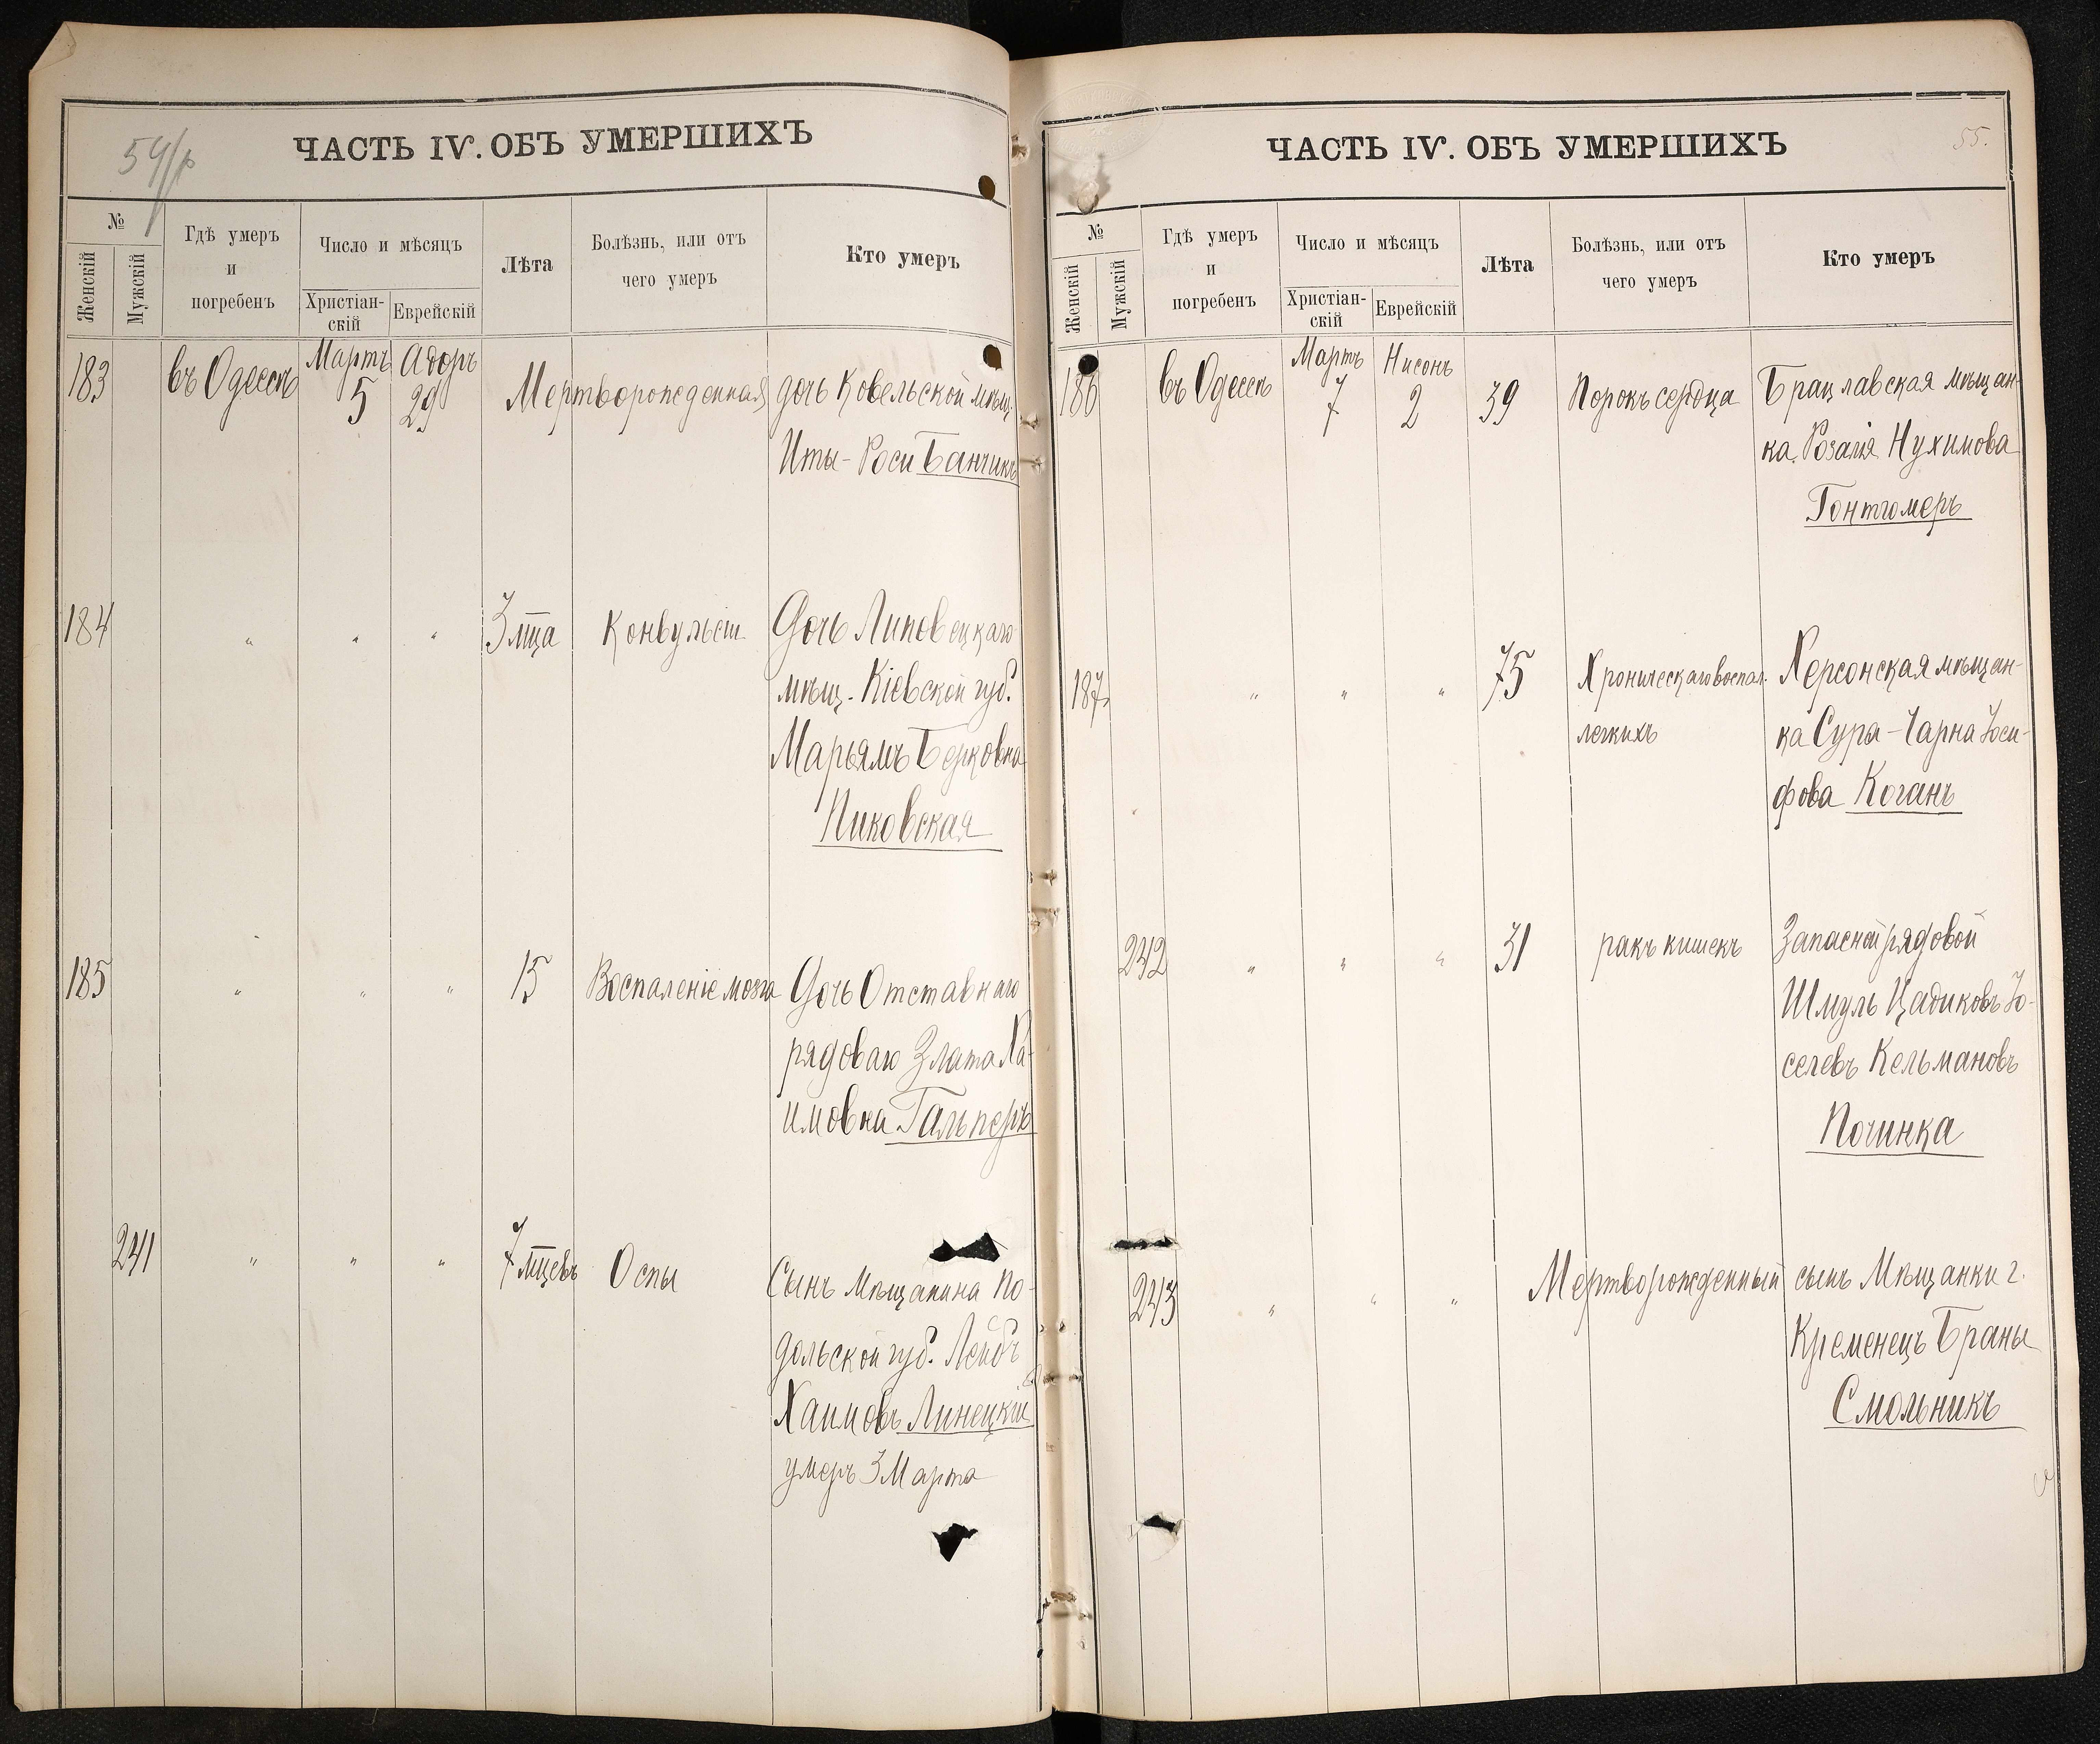 54/р
ЧАСТЬ IV. ОБЪ УМЕРШИХЪ
№
Женскій
Мужскій
Гдѣ умеръ
и
погребенъ
Число и мѣсяцъ
Христіан-
скій
Еврейскій
Лѣта
Болѣзнь, или отъ
чего умеръ
Кто умеръ
183 въ Одессѣ Мартъ 5 Адоръ 29 Мертворожденная дочь Ковельской мѣщ.
Иты-Роси Банчикъ
184 " " " 3 мца Конвульсіи Дочь Липовецкаго
мѣщ. Кіевской губ.
Марьямъ Берковна
Пиковская
185 " " " 15 Воспаленіе мозга Дочь Отставнаго
рядоваго Злата Ха-
имовна Гальперъ
241 " " " 7 мцевъ Оспы Сынъ Мѣщанина По-
дольской губ. Лейбъ
Хаимовъ Линецкій
умеръ 3 Марта
55.
ЧАСТЬ IV. ОБЪ УМЕРШИХЪ
№
Женскій
Мужскій
Гдѣ умеръ
и
погребенъ
Число и мѣсяцъ
Христіан-
скій
Еврейскій
Лѣта
Болѣзнь, или отъ
чего умеръ
Кто умеръ
186 въ Одессѣ Мартъ 7 Нисонъ 2 39 Порокъ сердца Брацлавская мѣщан-
ка Розалія Нухимова
Гонтгомеръ
187 " " " 75 Хроническаго воспал. Херсонская мѣщан-
легкихъ ка Сура-Чарна Іоси-
фова Коганъ
242 " " " 31 ракъ кишекъ Запасной рядовой
Шмуль Цадиковъ Іо-
селевъ Кельмановъ
Починка
243 " " " Мертворожденный сынъ Мѣщанки г.
Кременецъ Браны
Смольникъ